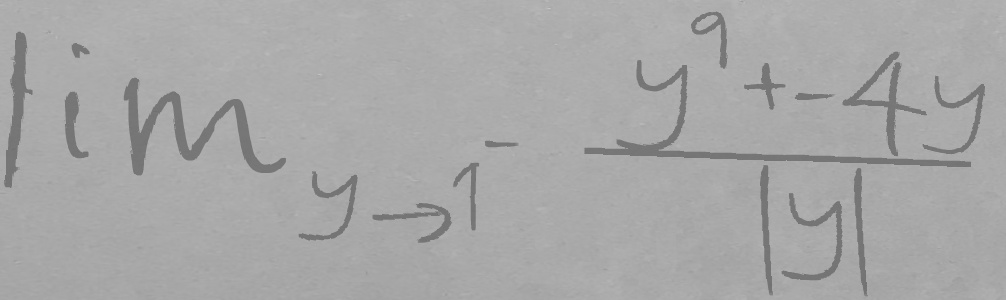 lim_{y→1^-} \frac{y^9+-4y}{|y|}